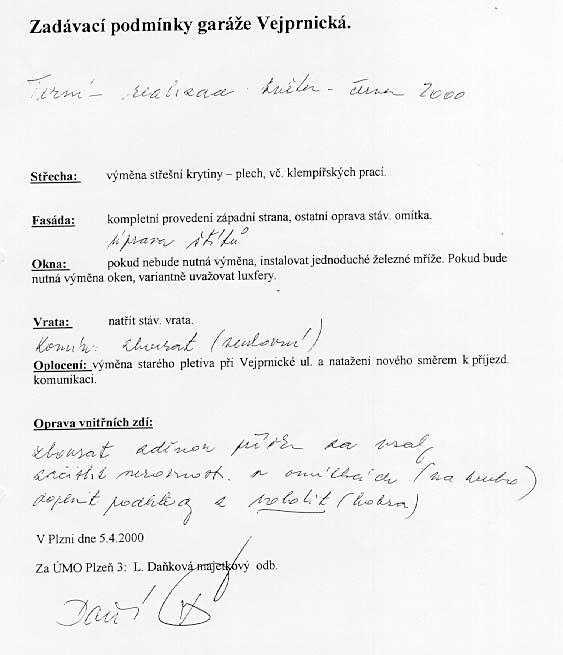 Zadávací podmínky garáže Vejprnická.
Termín realizace: květen - červen 2000
Střecha: výměna střešní krytiny – plech, vč. klempířských prací.
Fasáda: kompletní provedení západní strana, ostatní oprava stáv. omítka.
úprava štítů
Okna: pokud nebude nutná výměna, instalovat jednoduché železné mříže. Pokud bude
nutná výměna oken, variantně uvažovat luxfery.
Vrata: natřít stáv. vrata.
Komín: zbourat
Oplocení: výměna starého pletiva při Vejprnické ul. a natažení nového směrem k příjezd.
komunikaci.
Oprava vnitřních zdí:
zbourat
nerovnost. v omítkách (na hrubo)
doplnit podhledy a (kobra)
V Plzni dne 5.4.2000
Za ÚMO Plzeň 3: L. Daňková majetkový odb.